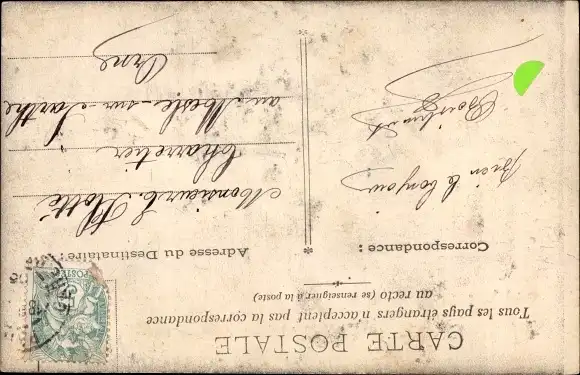 CARTE POSTALE
Tous les pays étrangers n'acceptent pas la correspondance
au recto (se renseigner à la poste)
Correspondance :
Adresse du Destinataire :
bien le bonjour
Monsieur E. Hotté
Charretier
au Mesle-sur-Sarthe
Orne
POSTES
5